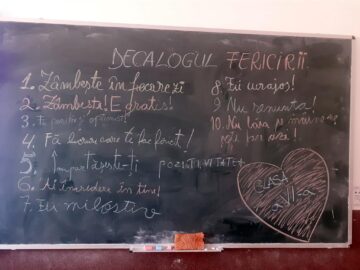 DECALOGUL FERICIRII
1. Zâmbește în fiecare zi
2. Zâmbește! E gratis!
3. Fii pozitiv, optimist!
4. Fă lucruri care te fac fericit!
5. Împărtășește-ți POZITIVITATEA
6. Ai încredere în tine!
7. Fii milostiv
8. Fii curajos!
9. Nu renunța!
10. Nu lăsa pe mâine ce poți
azi!
CLASA
a VI-a